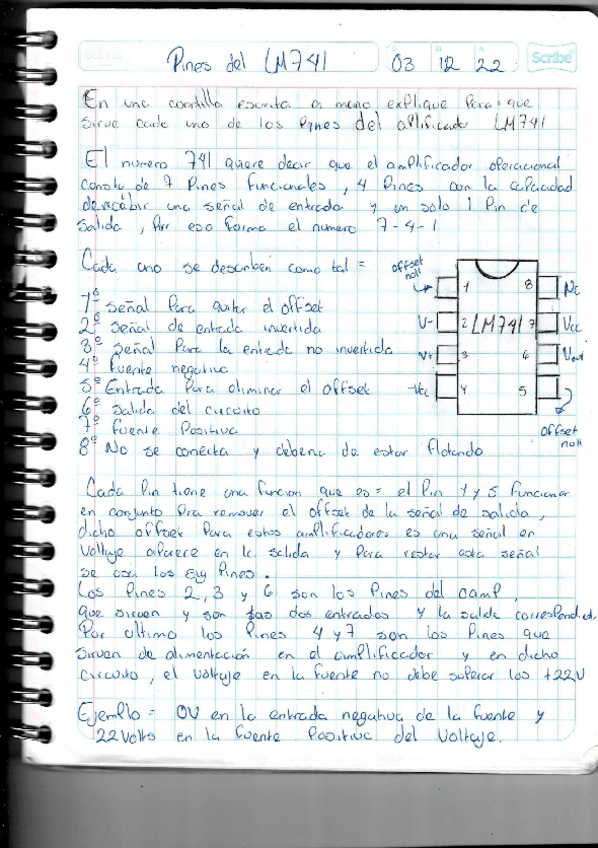 Pines del LM741
03 12 22
Scribe
En una cuartilla escrita a mano explique para que
sirve cada uno de los pines del aplificador LM741
El numero 741 quiere decir que el amplificador operacional
consta de 7 Pines funcionales, 4 Pines con la capacidad
de recibir una señal de entrada y un solo 1 Pin de
Salida, Por eso forma el numero 7-4-1
Cada uno se describen como tal =
1º señal Para quitar el offset
2º señal de entrada invertida
3º señal Para la entrada no invertida
4º fuente negativa
5º Entrada Para eliminar el offset
6º salida del circuito
7º fuente Positiva
8º No se conecta y debera de estar flotando
offset null
1 8 NC
V- 2 LM741 7 Vcc
V+ 3 6 Vout
-Vcc 4 5
offset null
Cada Pin tiene una funcion que es = el Pin 1 y 5 funcionan
en conjunto Pra remover el offset de la señal de salida,
dicho offset Para estos amplificadores es una señal en
Voltaje aparere en la salida y Para restar esta señal
se usan los Pines.
Los Pines 2, 3 y 6 son los Pines del camp,
que sirven y son las dos entradas y la salida
Por ultimo los Pines 4 y 7 son los Pines que
sirven de alimentación en el amplificador y en dicho
circuito, el voltaje en la fuente no debe superar los +22V
Ejemplo = 0V en la entrada negativa de la fuente y
22 volts en la fuente Positiva del Voltaje.